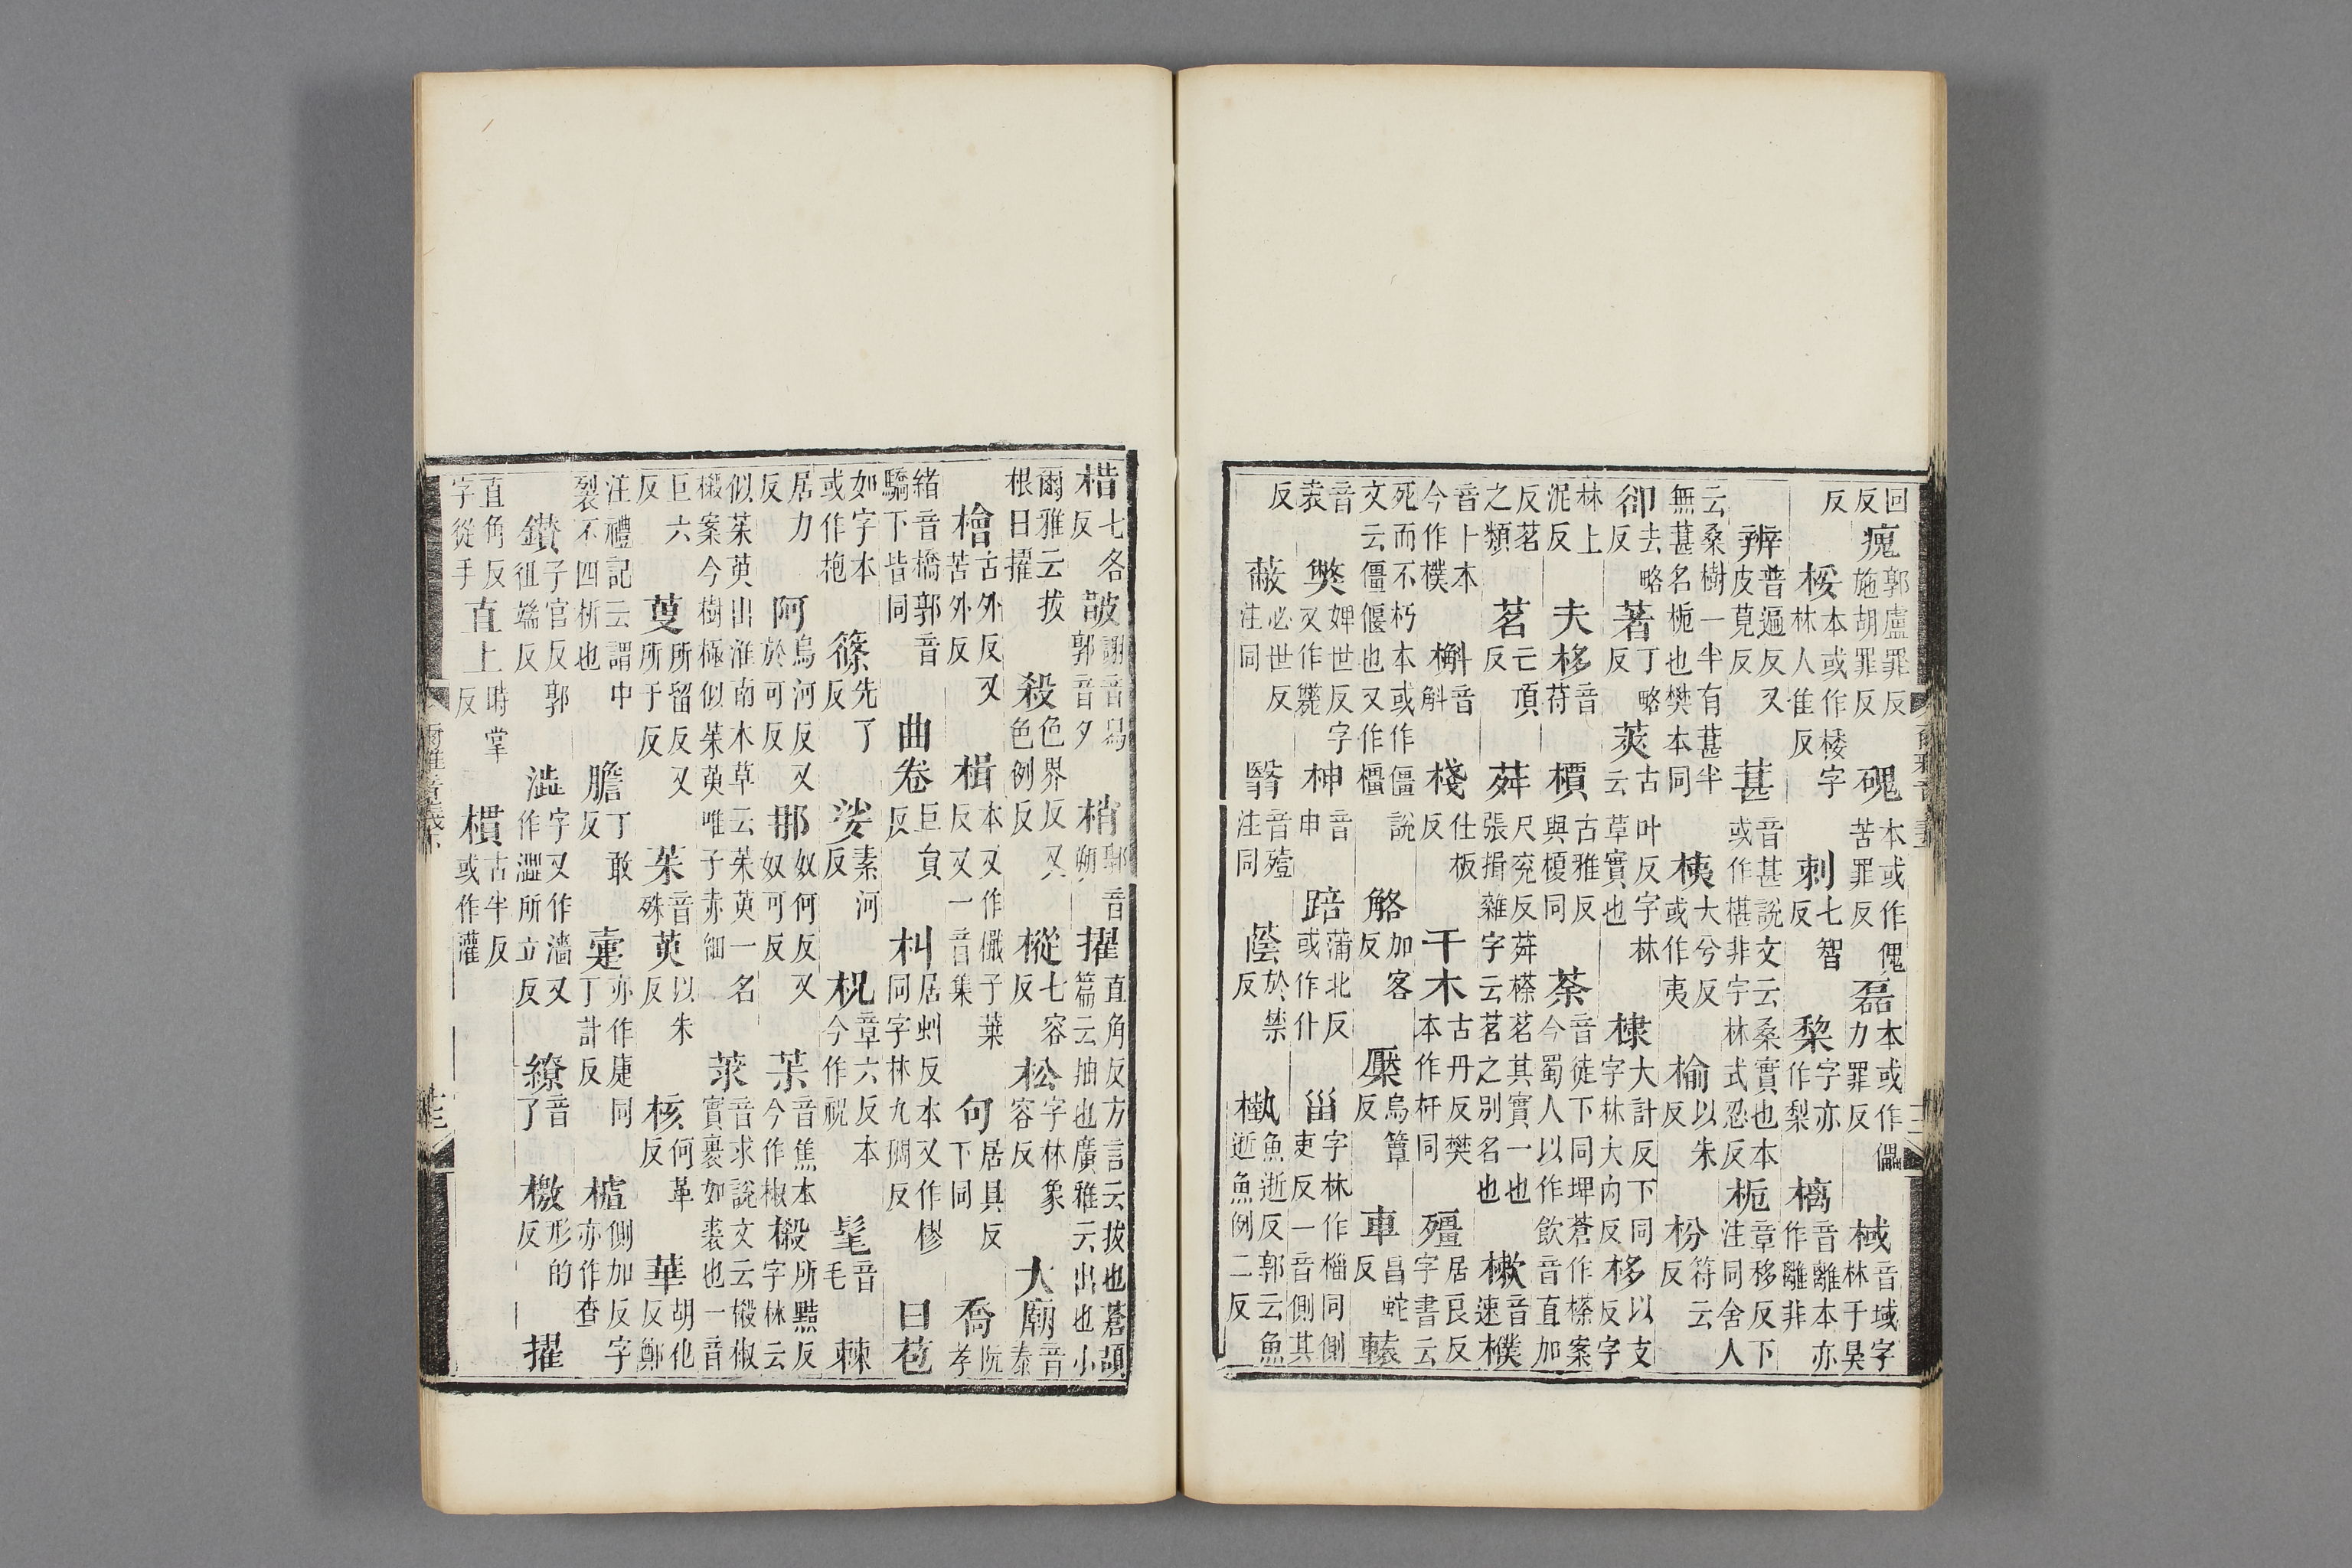 回反反瘣郭盧罪反施胡罪反磈本或作傀苦罪反磊本或作儡力罪反棫音域字林于昊
反桵本或作楼字林人隹反刺七智反棃字亦作梨樆音離本亦作離非
辨普遍反又皮莧反葚音甚說文云桑實也本或作椹非字林式忍反梔章移反下注同舍人
云桑樹一半有葚半無葚名梔也樊本同桋大兮反或作夷榆以朱反枌符云反
卻去略反著丁略反莢古叶反字林云草實也棣大計反下同字林大内反栘以支反字
林上泥反夫栘音苻檟古雅反與榎同荼音徒下同埤蒼作㯶案今蜀人以作飲音直加
反茗之類茗亡頂反荈尺兖反荈㯶茗其實一也張揖雜字云茗之別名也樕音速樸
音卜本今作樸槲音斛棧仕板反干木古丹反樊本作杆同殭居良反字書云
死而不朽本或作僵說文云僵偃也又作橿觡加客反檿烏簟反車昌蛇反轅
音袁獘婢世反字又作斃神音申踣蒲北反或作仆甾字林作椔同側吏反一音側其
反蔽必世反注同翳音殪注同蔭於禁反槸魚逝反郭云魚逝魚例二反
楷七各反皵謝音舄郭音夕梢郭音朔擢直角反方言云拔也蒼頡篇云抽也廣雅云出也小
爾雅云拔根曰擢殺色界反又色例反樅七容反松字林象容反大廟音泰
檜古外反又苦外反楫本又作檝子葉反又一音集句居具反下同喬阮孝
緒音橋郭音驕下皆同曲卷巨負反朻居虯反本又作樛同字林九稠反曰苞
如字本或作枹篠先了反娑素河反柷章六反本今作祝髦音毛棘
居力反阿烏河反又於可反那奴何反又奴可反茮音焦本今作椒樧所黠反字林云
似茱萸出淮南本草云茱萸一名樧案今樹極似茱萸唯子赤細莍音求說文云樧椒實裹如裘也一音
巨六反蓃所留反又所于反茱音殊萸以朱反核何革反華胡化反鄭
注禮記云謂中裂不四析也膽丁敢反疐亦作疌同丁計反樝側加反字亦作查
鑽子官反郭徂端反澁字又作濇又作澀所立反繚音了檄形的反擢
直角反字從手直上時掌反樌古半反或作灌